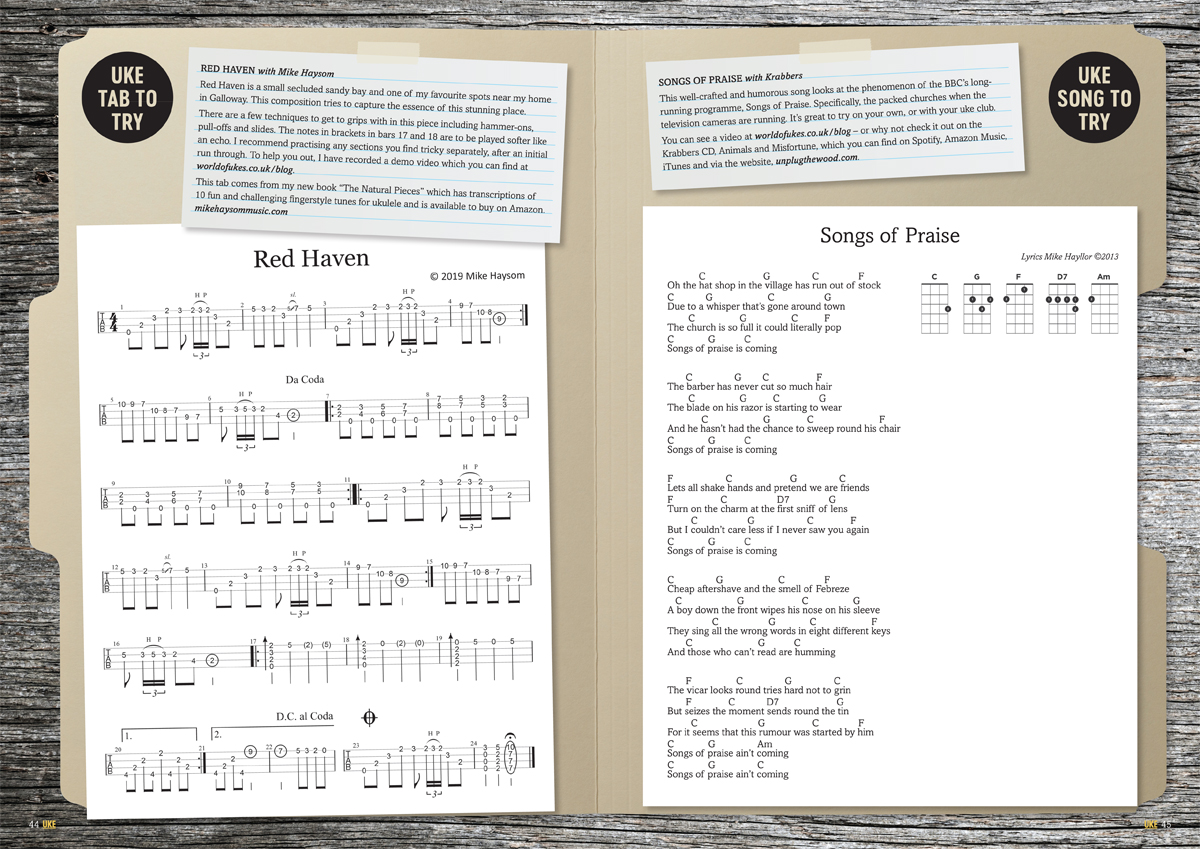 UKE
TAB TO
TRY
RED HAVEN with Mike Haysom
Red Haven is a small secluded sandy bay and one of my favourite spots near my home
in Galloway. This composition tries to capture the essence of this stunning place.
There are a few techniques to get to grips with in this piece including hammer-ons,
pull-offs and slides. The notes in brackets in bars 17 and 18 are to be played softer like
an echo. I recommend practising any sections you find tricky separately, after an initial
run through. To help you out, I have recorded a demo video which you can find at
worldofukes.co.uk/blog.
This tab comes from my new book “The Natural Pieces” which has transcriptions of
10 fun and challenging fingerstyle tunes for ukulele and is available to buy on Amazon.
mikehaysommusic.com
Red Haven
© 2019 Mike Haysom
Da Coda
D.C. al Coda
1.
2.
44 UKE
SONGS OF PRAISE with Krabbers
This well-crafted and humorous song looks at the phenomenon of the BBC’s long-
running programme, Songs of Praise. Specifically, the packed churches when the
television cameras are running. It’s great to try on your own, or with your uke club.
You can see a video at worldofukes.co.uk/blog – or why not check it out on the
Krabbers CD, Animals and Misfortune, which you can find on Spotify, Amazon Music,
iTunes and via the website, unplugthewood.com.
UKE
SONG TO
TRY
Songs of Praise
Lyrics Mike Hayllor ©2013
C G F D7 Am
C G C F
Oh the hat shop in the village has run out of stock
C G C G
Due to a whisper that’s gone around town
C G C F
The church is so full it could literally pop
C G C
Songs of praise is coming
C G C F
The barber has never cut so much hair
C G C G
The blade on his razor is starting to wear
C G C F
And he hasn’t had the chance to sweep round his chair
C G C
Songs of praise is coming
F C G C
Lets all shake hands and pretend we are friends
F C D7 G
Turn on the charm at the first sniff of lens
C G C F
But I couldn’t care less if I never saw you again
C G C
Songs of praise is coming
C G C F
Cheap aftershave and the smell of Febreze
C G C G
A boy down the front wipes his nose on his sleeve
C G C F
They sing all the wrong words in eight different keys
C G C
And those who can’t read are humming
F C G C
The vicar looks round tries hard not to grin
F C D7 G
But seizes the moment sends round the tin
C G C F
For it seems that this rumour was started by him
C G Am
Songs of praise ain’t coming
C G C
Songs of praise ain’t coming
UKE 45